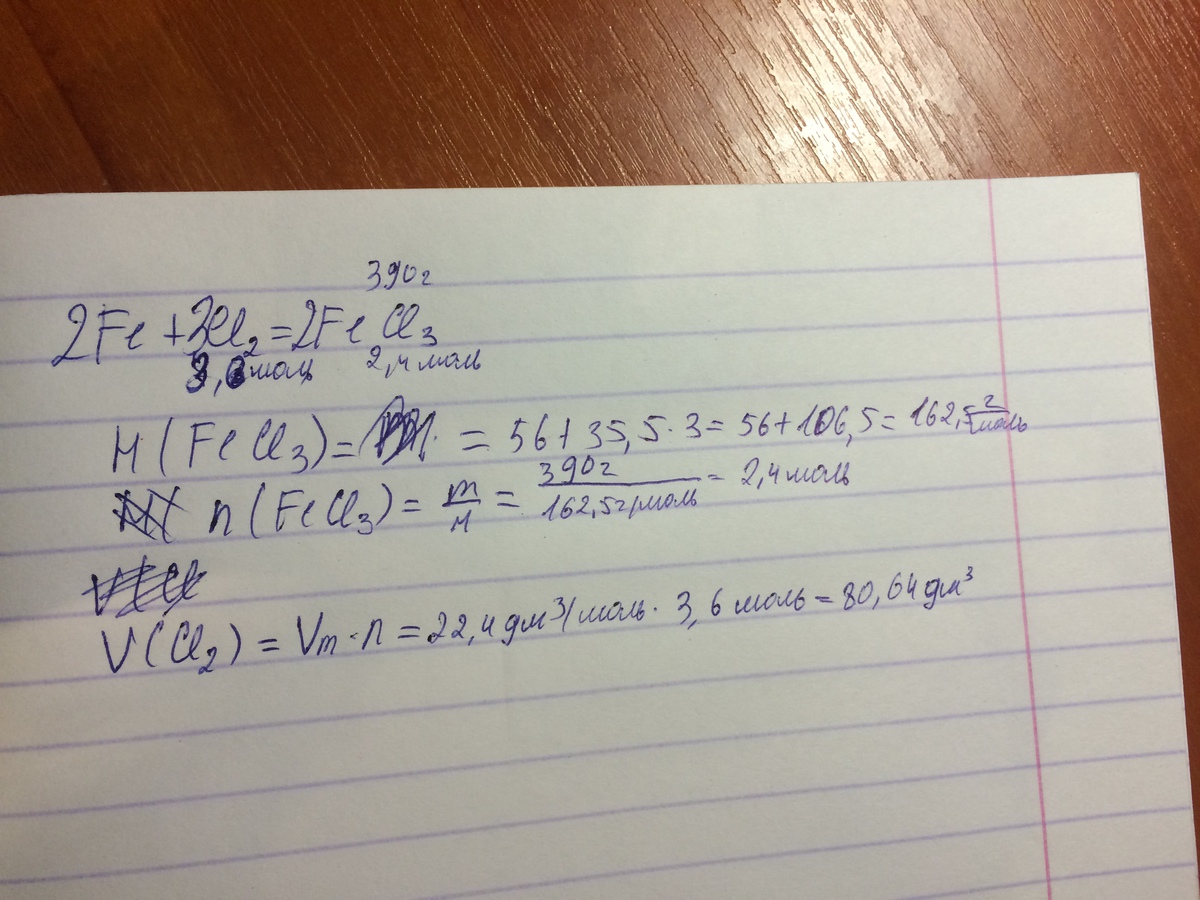 390г
2Fe + 3Cl₂ = 2FeCl₃
3,6 моль 2,4 моль
M(FeCl₃) = = 56 + 35,5 · 3 = 56 + 106,5 = 162,5 г/моль
n(FeCl₃) = m/M = 390г/162,5г/моль = 2,4 моль
V(Cl₂) = Vm · n = 22,4 дм³/моль · 3,6 моль = 80,64 дм³